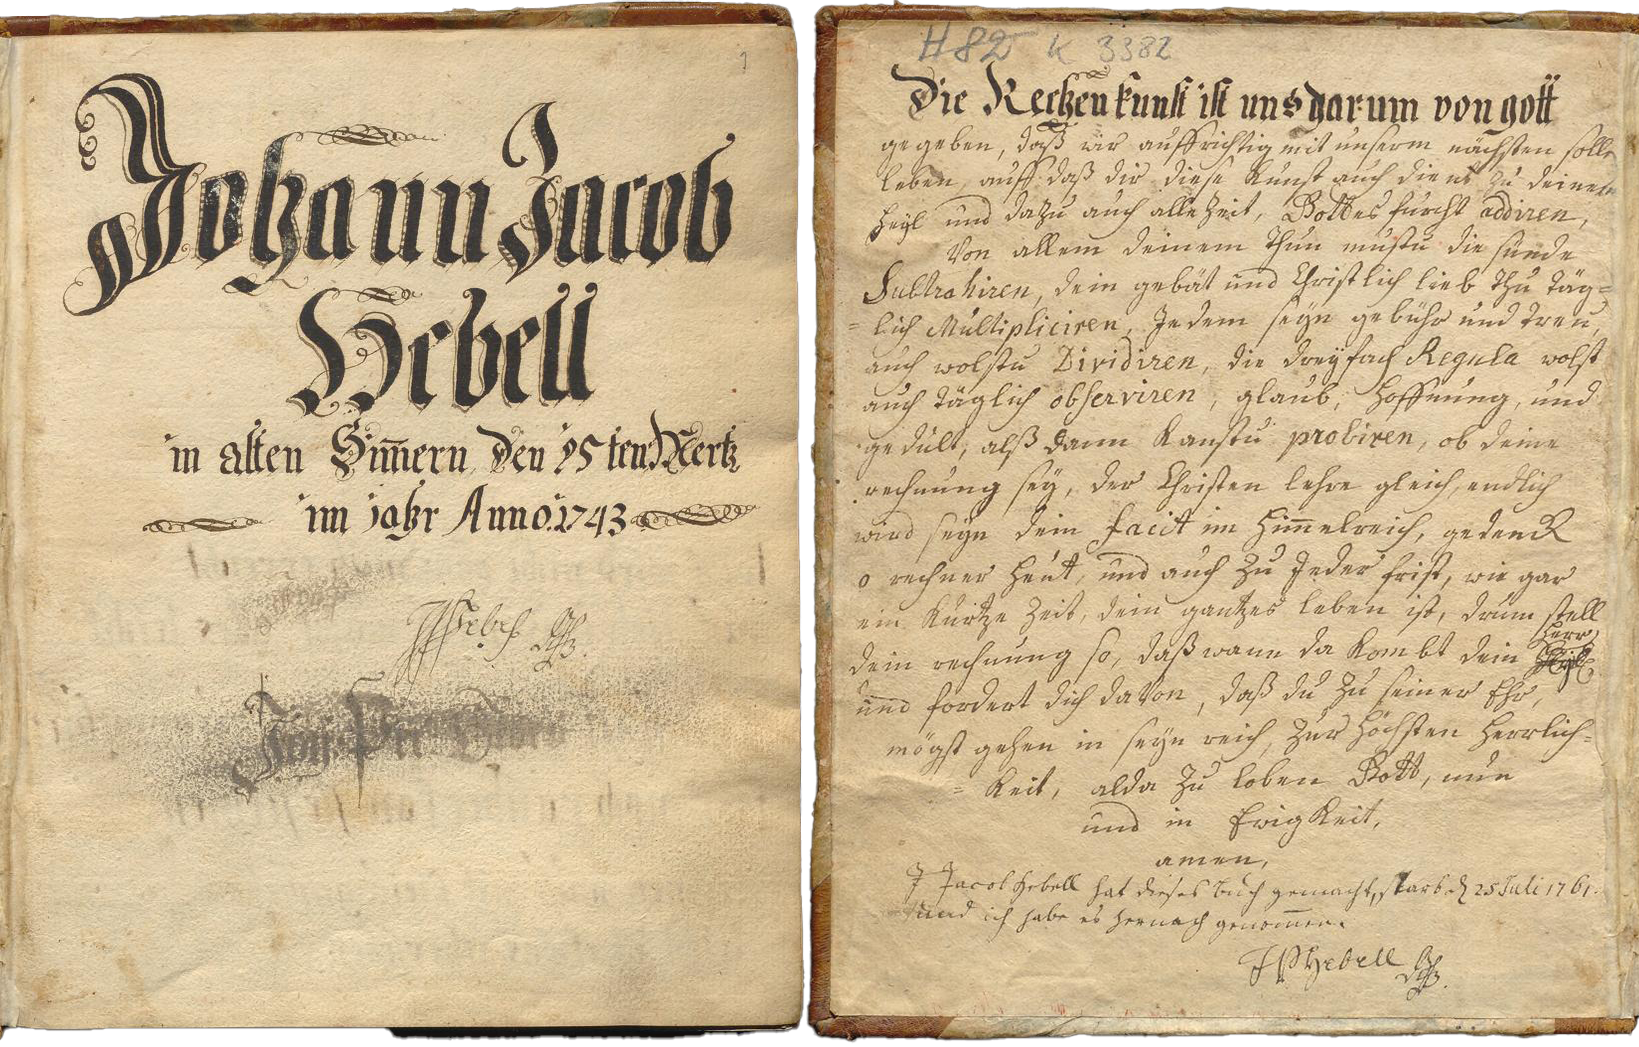 Johann Jacob
Hebell
in alten Sim̅ern, Den 25ten Mertz
im jahr Anno. 1743
H 82 K 3382
Die Rechenkunst ist uns darum von gott
gegeben, daß wir auffrichtig mit unserm nächsten solln
leben, auff daß dir diese Kunst auch diene zu deinem
Heyl und dazu auch alle Zeit, Gottes furcht addiren,
Von allem deinem thun mustu die sünde
Subtrahiren, dein gebät und Christlich lieb thu Täg=
=lich Multipliciren, Jedem seyn gebühr und treu,
auch wolstu Dividiren, die dreyfach Regula wolst
auch täglich observiren, glaub, Hoffnung, und
gedult, alß dann Kanstu probiren, ob deine
rechnung sey, der Christen lehre gleich, endlich
wird seyn dein facit im Him̅elreich, gedenck
o rechner heut, und auch zu Jeder frist, wie gar
ein Kurtze Zeit, dein gantzes leben ist, drum stell
dein rechnung so, daß wann da Kombt dein Herr
und fordert dich davon, daß du zu seiner Ehr,
mögst gehen in seyn reich, zur höchsten Herrlich=
=Keit, alda zu loben Gott, nun
und in EwigKeit,
amen,
J Jacob Hebell hat dieses buch gemacht, starb d 25 Juli 1761.
und ich habe es hernach genom̅en.
JPHebell